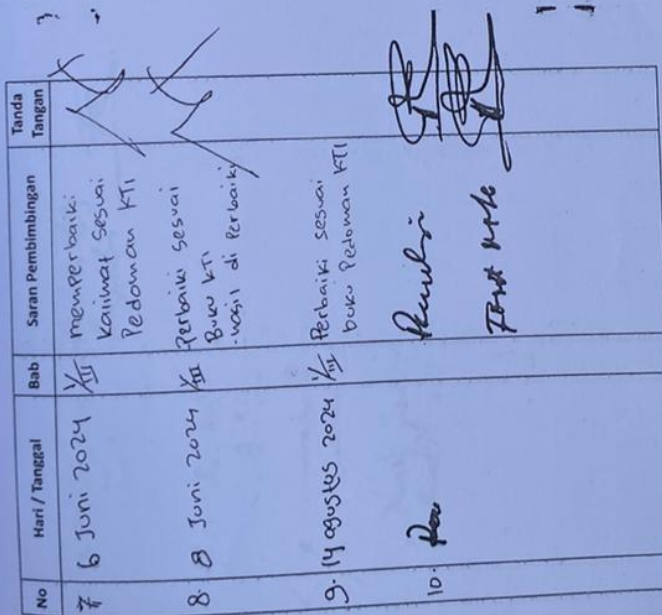 No Hari / Tanggal Bab Saran Pembimbingan Tanda Tangan
7 6 Juni 2024 I/III memperbaiki
kalimat sesuai
Pedoman KTI
8. 8 Juni 2024 I/III Perbaiki sesuai
Buku KTI
-hasil di Perbaiki
9. 14 agustus 2024 I/III Perbaiki sesuai
buku Pedoman KTI
10.